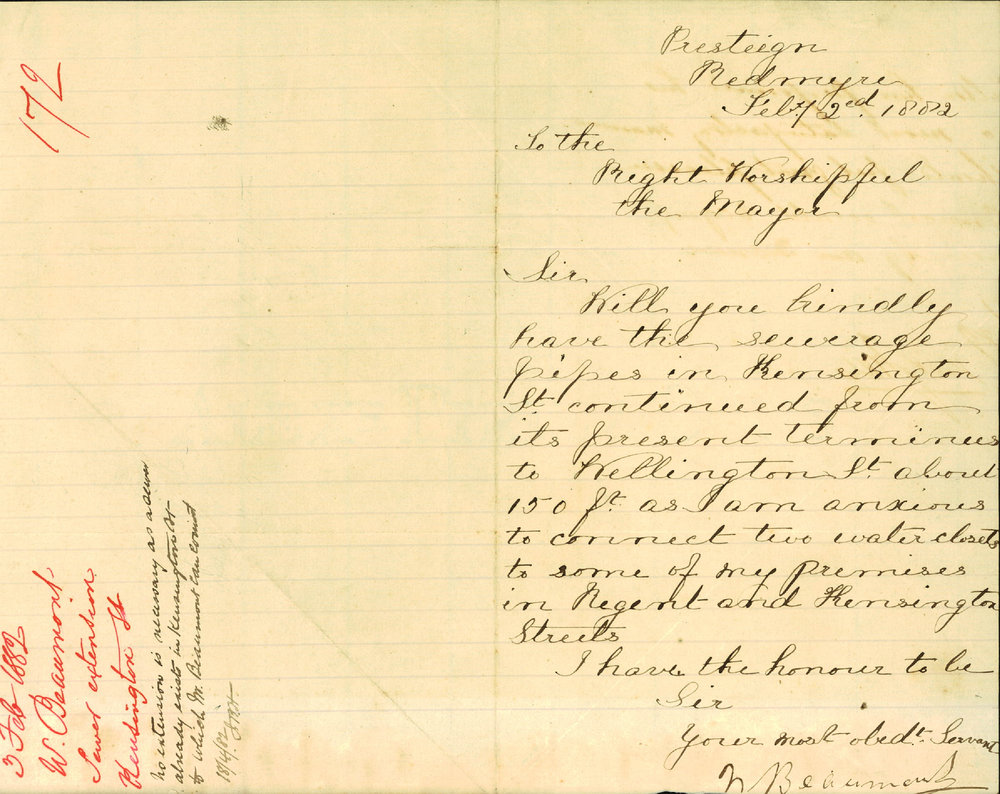 Presteign
Redmyre
Feby 2ed. 1882
To the
Right Worshipful
the Mayor
Sir
Will you kindly
have the sewerage
pipes in Kensington
St. continued from
its present terminus
to Wellington St. about
150 ft. as I am anxious
to connect two water closets
to some of my premises
in Regent and Kensington
Streets
I have the honour to be
Sir
Your most obedt. Servant
W Beaumont
172
3 Feb 1882
W. Beaumont
Sewer extension
Kensington St
No extension is necessary as a sewer
already exists in Kensington St
to which Mr. Beaumont can connect
18/4/82